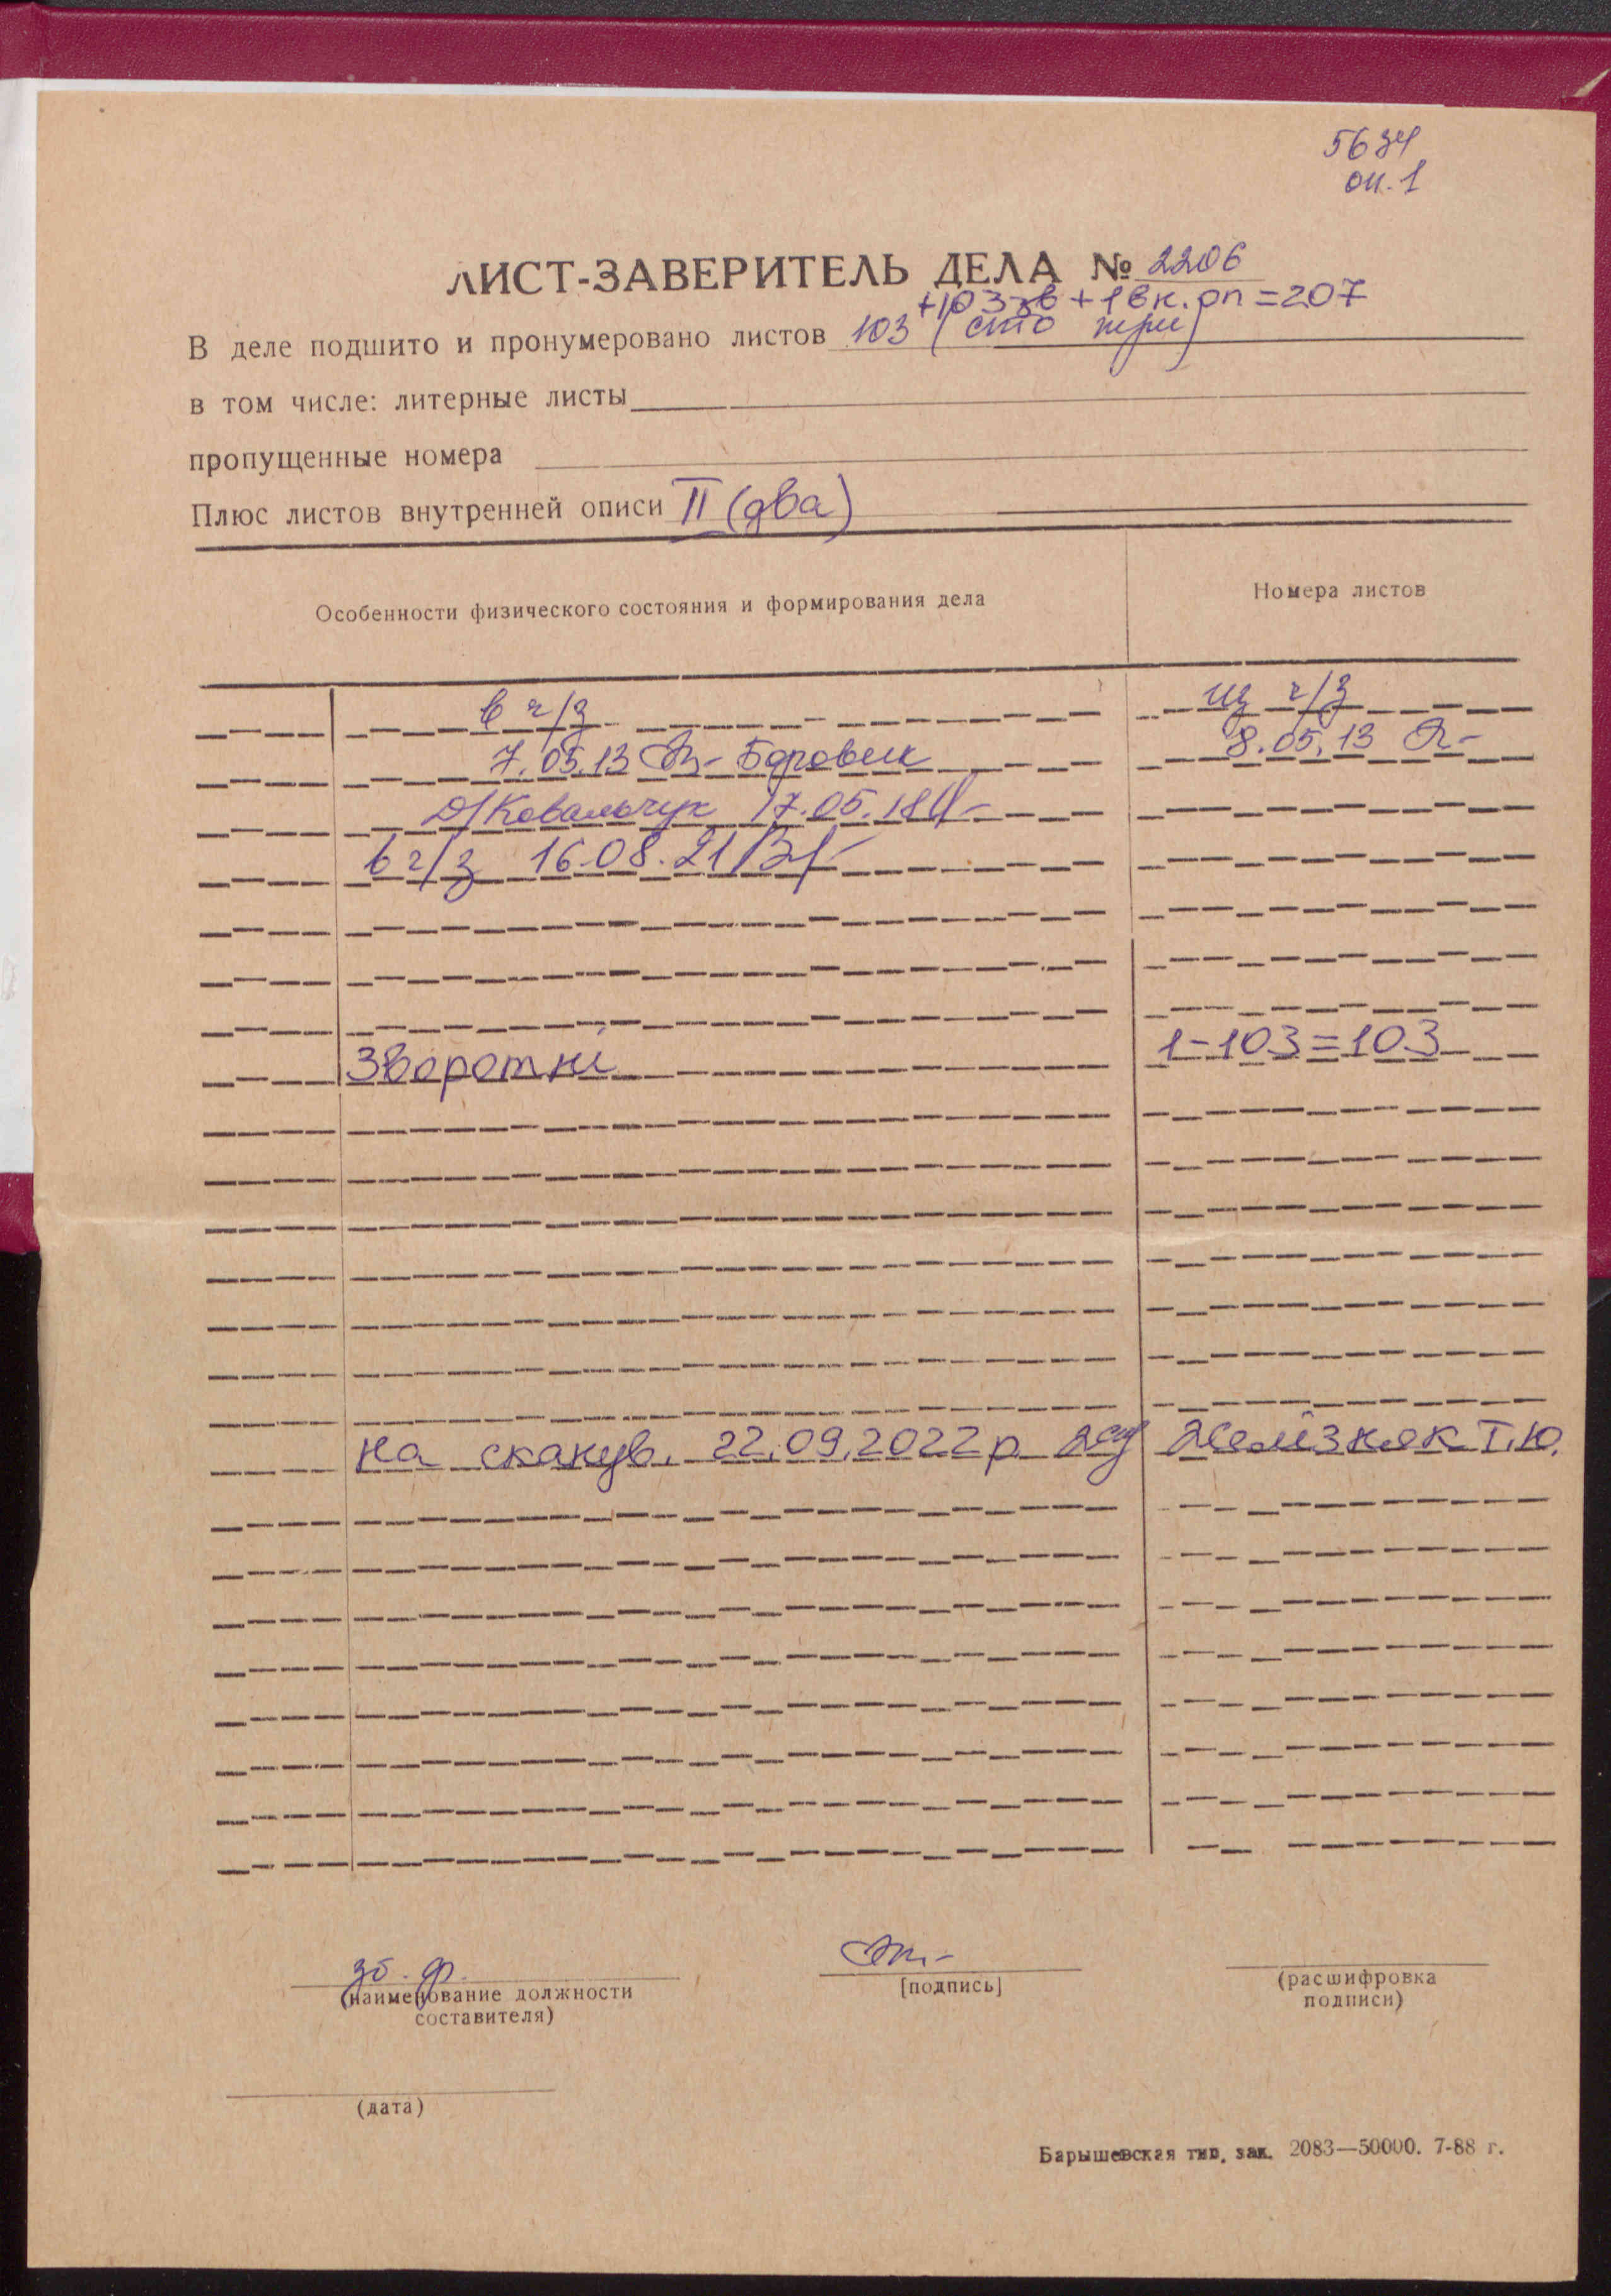 5634
оп. 1
ЛИСТ-ЗАВЕРИТЕЛЬ ДЕЛА № 2206
+103 зв + 1 вк. оп = 207
В деле подшито и пронумеровано листов 103 (сто три)
в том числе: литерные листы
пропущенные номера
Плюс листов внутренней описи II (два)
Особенности физического состояния и формирования дела
Номера листов
в ч/з из ч/з
7.05.13 Боровик 8.05.13
Ковальчук 17.05.18
в ч/з 16.08.21
Зворотні 1-103=103
на сканув. 22.09.2022 р. Желізняк Т.Ю.
зб. ф.
(наименование должности
составителя)
[подпись]
(расшифровка
подписи)
(дата)
Барышевская тип. зак. 2083—50000. 7-88 г.